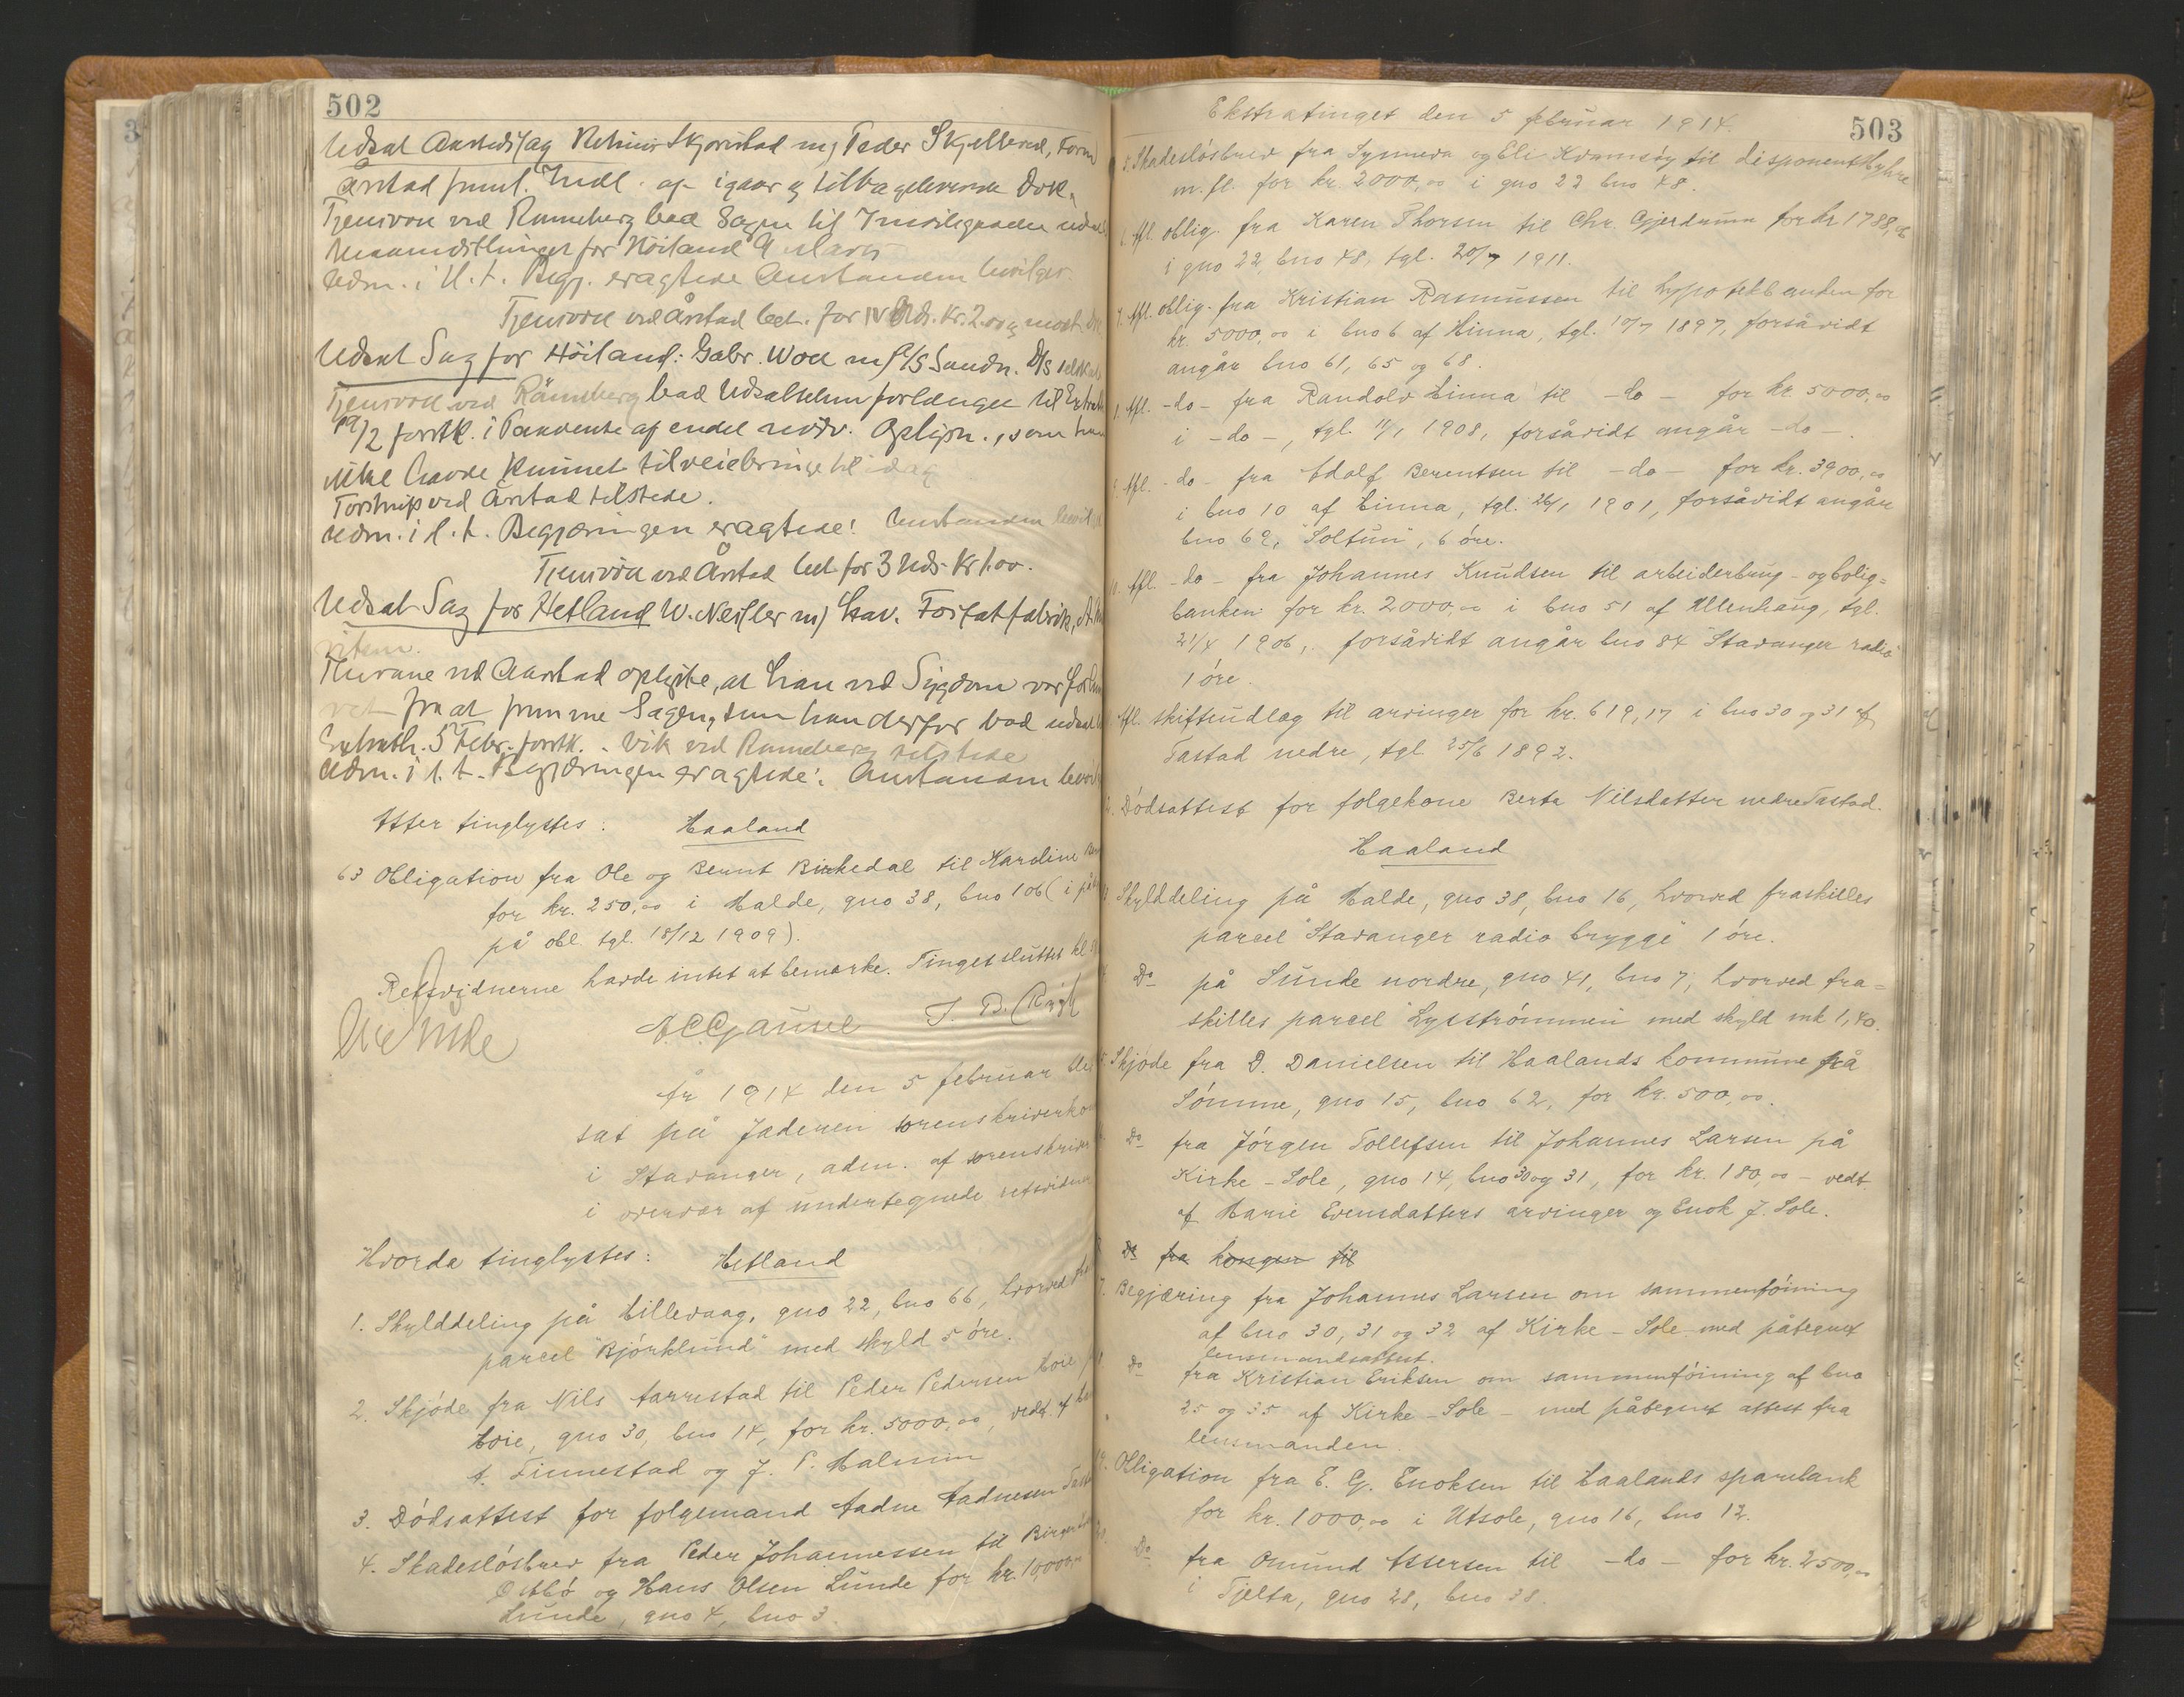 502
Udsat Aastedssag m/ Peder Skjelbred,
Årstad Indl. af igaar & tilbageleverede Dok.
Tjensvold ved Ranneberg bad Sagen til
for Höiland
Adm. i H. t. Begj. eragtede Anstanden bevilget
Tjensvold ved Årstad bet. for IV Uds. Kr. 2.00 &
Udsat Sag for Höiland: Gabr. m/ A/S Sandn.
Tjensvold ved Ranneberg bad Udsættelsen forlænget til
/2 førstk. i Paavente af endel nødv. Oplysn., som han
ikke havde kunnet tilveiebringe til idag
Torstrup ved Årstad tilstede.
Adm. i H. t. Begjæringen eragtede: Anstanden
Tjensvold ved Årstad bet. for 3 Uds. Kr 1.00.
Udsat Sag for Hetland W. Nessler m/ Stav. Fosfatfabrik,
Thurane ved Aarstad oplyste, at han ved Sygdom var
fra at fremme Sagen, som han derfor bad
5 Febr. førstk. Vik ved Ranneberg tilstede
Adm. i H. t. Begjæringen eragtede: Anstanden
Atter tinglystes: Haaland
63 Obligation fra Ole og Bernt Birkedal til Karoline
for kr. 250,00 i Halde, gno 38, bno 106 (i
på obl. tgl. 18/12 1909).
Retsvidnerne havde intet at bemærke. Tinget sluttet kl
År 1914 den 5 februar
sat på Jæderen
i Stavanger, adm. af
i overvær af undertegnede
Hvorda tinglystes: Hetland
1. Skylddeling på Lillevaag, gno 22, bno 66, hvorved
parcel "Bjórklund" med skyld 5 óre.
2. Skjóde fra Nils Aarrestad til Peder Pedersen Hoie
Hoie, gno 30, bno 14, for kr. 5000,00, vedt. af
A. Finnestad og J. P. Malmin
3. Dódsattest for folgemand Aadne Aadnesen
4. Skadeslósbrev fra Peder Johannessen til Birger
og Hans Olsen Lunde for kr. 10,000,00
Lunde, gno 4, bno 3.
Ekstratinget den 5 februar 1914.
503
5. Skadeslósbrev fra Synneva og Eli Kvamsóy til disponent Myhre
m. fl. for kr. 2000,00 i gno 22 bno 48.
6. Afl. oblig. fra Karen Thorsen til Chr. Gjerdrum for kr 1788,
i gno 22, bno 48, tgl. 20/7 1911.
7. Afl. oblig. fra Kristian Rasmussen til hypotekbanken for
kr. 5000,00 i bno 6 af Hinna, tgl. 10/7 1897, forsåvidt
angår bno 61, 65 og 68.
8. Afl. -do- fra Randolv Hinna til -do- for kr. 5000,00
i -do-, tgl. 11/1 1908, forsåvidt angår -do-.
9. Afl. -do- fra Adolf Berentsen til -do- for kr. 3900,00
i bno 10 af Hinna, tgl. 26/1 1901, forsåvidt angår
bno 69, "Soltun", 6 óre.
10. Afl. -do- fra Johannes Knudsen til arbeiderbrug- og bolig=
banken for kr. 2000,00 i bno 51 af Ullenhaug, tgl.
21/4 1906, forsåvidt angår bno 84 "Stavanger radio"
1 óre.
Afl. skifteudlæg til arvinger for kr. 619,17 i bno 30 og 31 af
Tastad nedre, tgl. 25/6 1892.
Dódsattest for folgekone Berta Nilsdatter nedre Tastad.
Haaland
Skylddeling på Halde, gno 38, bno 16, hvorved fraskilles
parcel "Stavanger radio brygge" 1 óre.
Do på Sunde nordre, gno 41, bno 7, hvorved fra=
skilles parcel "Lysstrómmen" med skyld mk 1,40.
Skjóde fra D. Danielsen til Haalands kommune på
Sómme, gno 15, bno 62, for kr. 500,00.
Do fra Jórgen Tollefsen til Johannes Larsen på
Kirke-Sole, gno 14, bno 30 og 31, for kr. 180,00 - vedt.
af Marie Evensdatters arvinger og Enok J. Sole.
Do fra kongen til
Begjæring fra Johannes Larsen om sammenfóining
af bno 30, 31 og 32 af Kirke-Sole med påtegnet
lensmandsattest.
Do fra Kristian Eriksen om sammenfóining af bno
25 og 35 af Kirke-Sole - med påtegnet attest fra
lensmanden.
19. Obligation fra E. G. Enoksen til Haalands sparebank
for kr. 1000,00 i Utsole, gno 16, bno 12.
Do fra Omund Assersen til -do- for kr. 2500,00
i Tjelta, gno 28, bno 38.